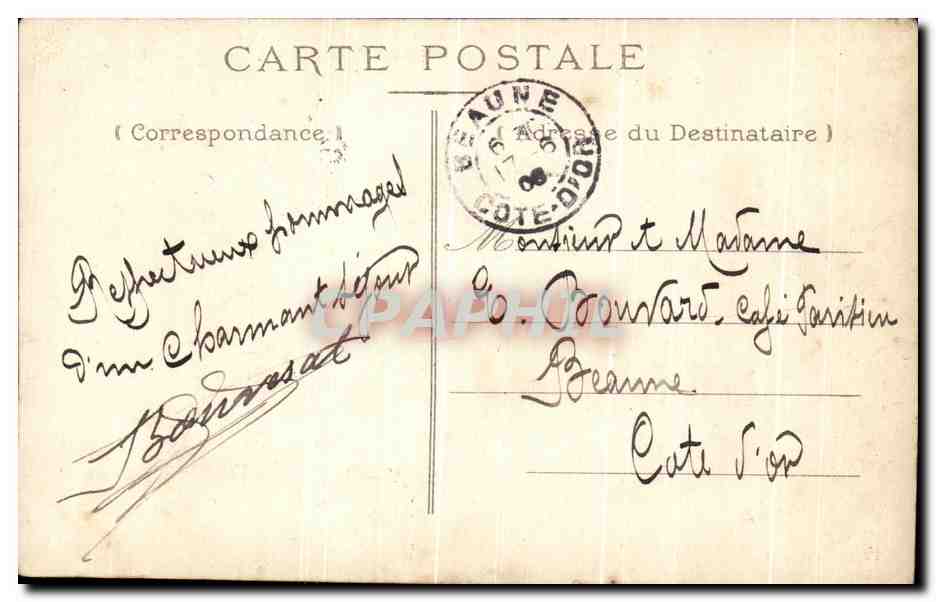 CARTE POSTALE
( Correspondance )
( Adresse du Destinataire )
BEAUNE
6 6
08
COTE-D'OR
Respectueux hommages
d'un Charmant séjour
Monsieur et Madame
Bouvard. Café Parisien
Beaune
Cote d'or
CPAPHIL